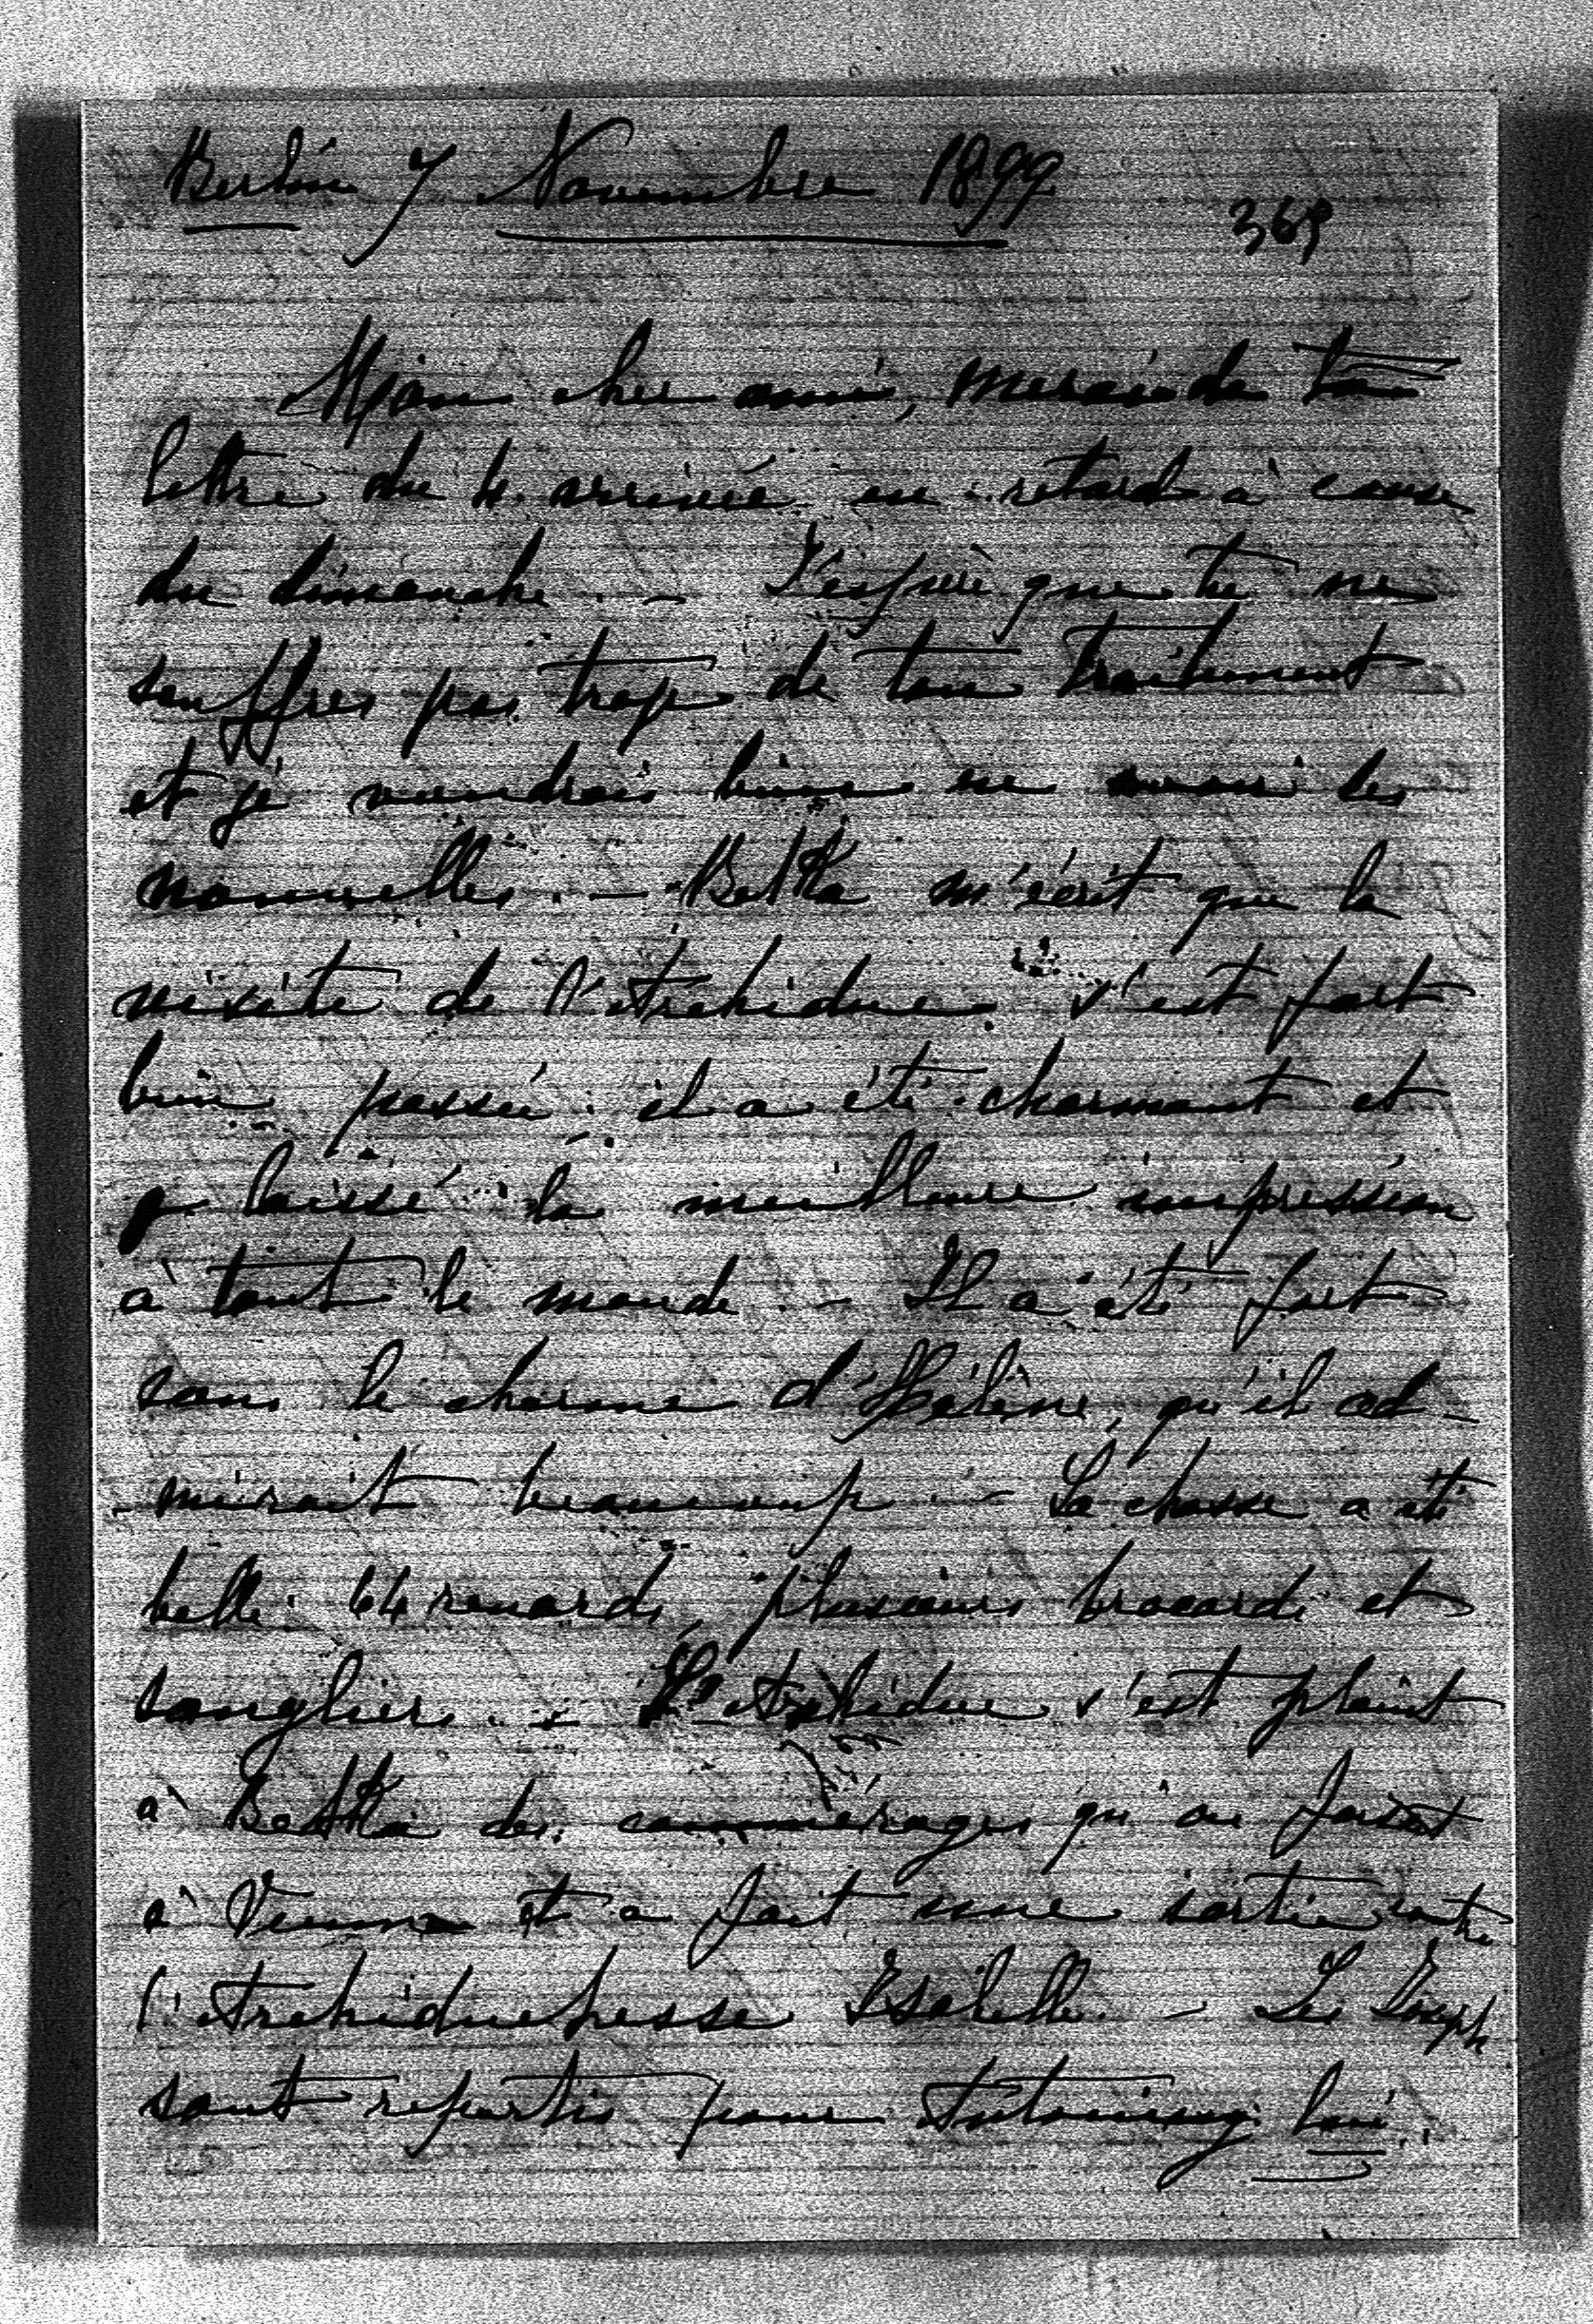 Berlin 7 Novembre 1899
369
Mon cher ami, merci de ta
lettre du 4 arrivée en retard à cause
du dimanche. – J'espère que tu ne
souffres pas trop de ton traitement
et je voudrais bien en avoir des
nouvelles. – Betka m'écrit que la
visite de l'Archiduc s'est fort
bien passée: il a été charmant et
a laissé la meilleure impression
à tout le monde. – Il a été fort
sous le charme d'Hélène, qu'il ad-
-mirait beaucoup. – La chasse a été
belle: 64 renards, plusieurs brocards et
sangliers. – L'Archiduc s'est plaint
à Betka des commérages qu'on faisait
à Vienne et a fait une sortie contre
l'Archiduchesse Isabelle. – Les Joseph
sont repartis pour Antoniny: lui